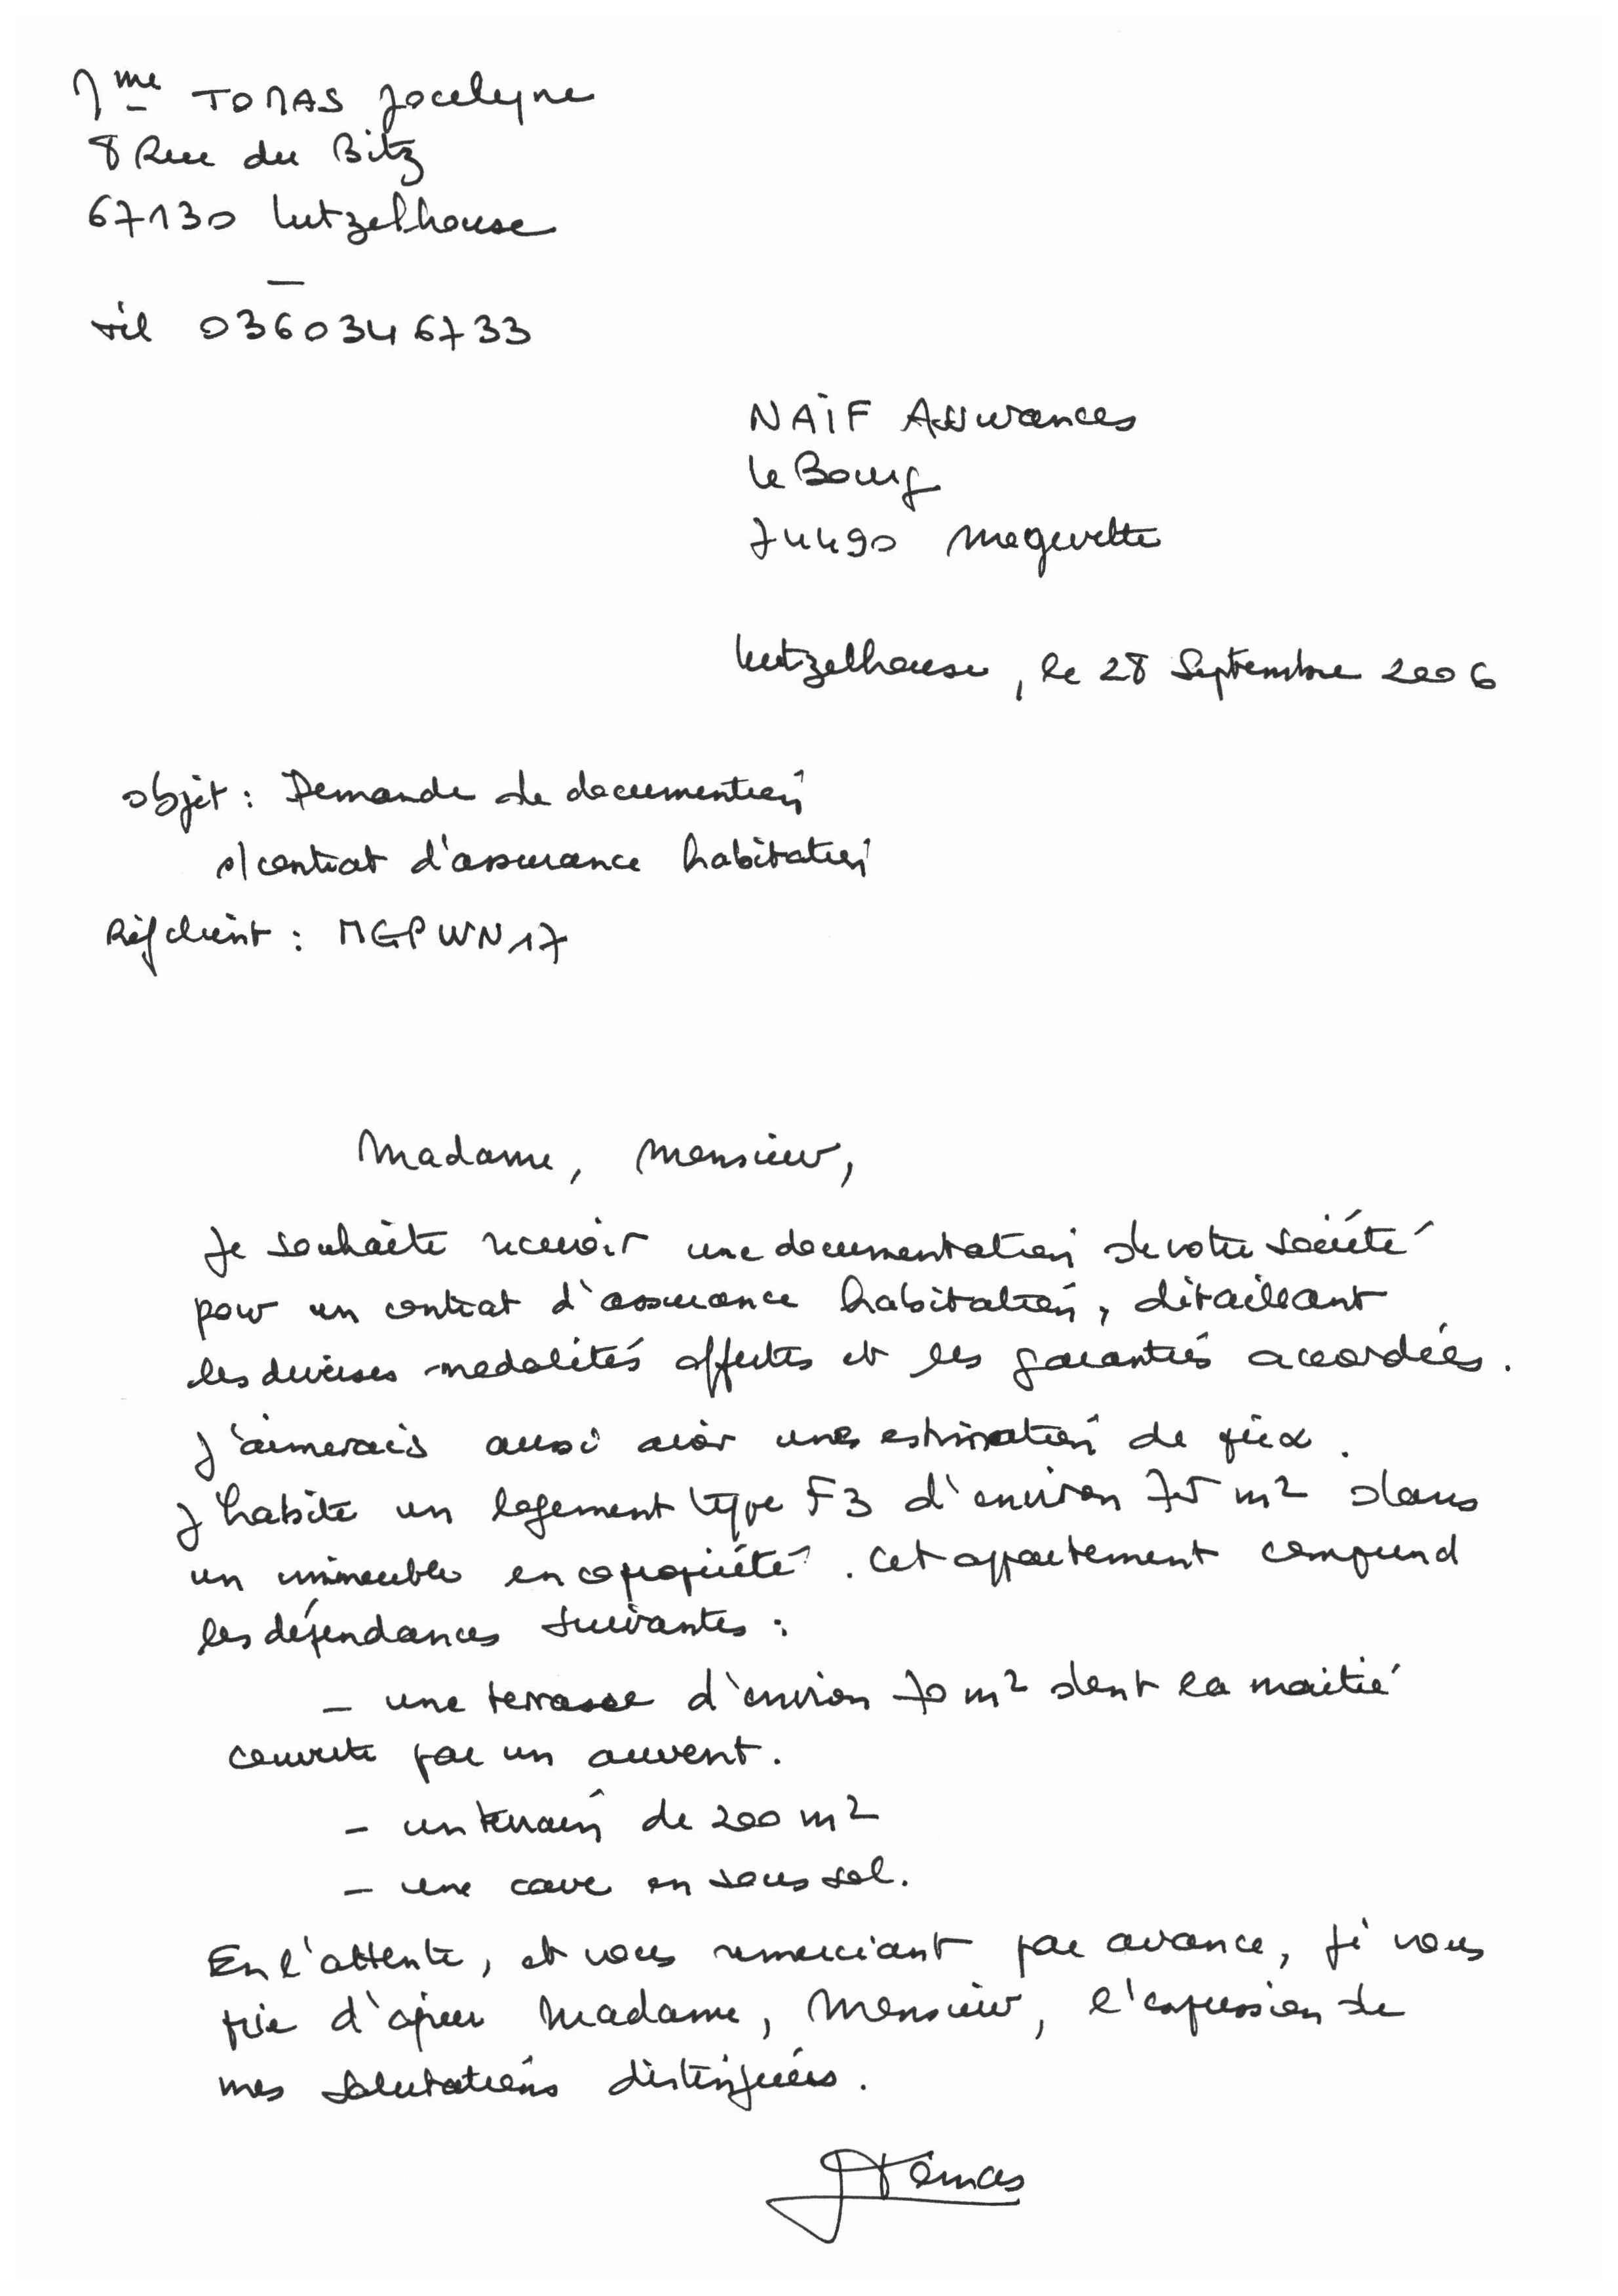 Mme TOMAS Jocelyne
8 Rue du Bitz
67130 Lutzelhouse
tél 0360346733
NAÏF Assurances
Le Bourg
74490 Megevette
Lutzelhouse, le 28 Septembre 2006
Objet : Demande de documention
s/contrat d'assurance habitation
Réf client : MGPWN17
Madame, Monsieur,
Je souhaite recevoir une documentation de votre société
pour un contrat d'assurance habitation, détaillant
les diverses modalités offertes et les garanties accordées.
J'aimerais aussi avoir une estimation de prix.
J'habite un logement type F3 d'environ 75 m2 dans
un immeuble en copropriété. Cet appartement comprend
les dépendances suivantes :
- une terrasse d'environ 70 m2 dont la moitié
couverte par un auvent.
- un terrain de 200 m2
- une cave en sous sol.
En l'attente, et vous remerciant par avance, je vous
prie d'agréer Madame, Monsieur, l'expression de
mes salutations distinguées.
JTomas